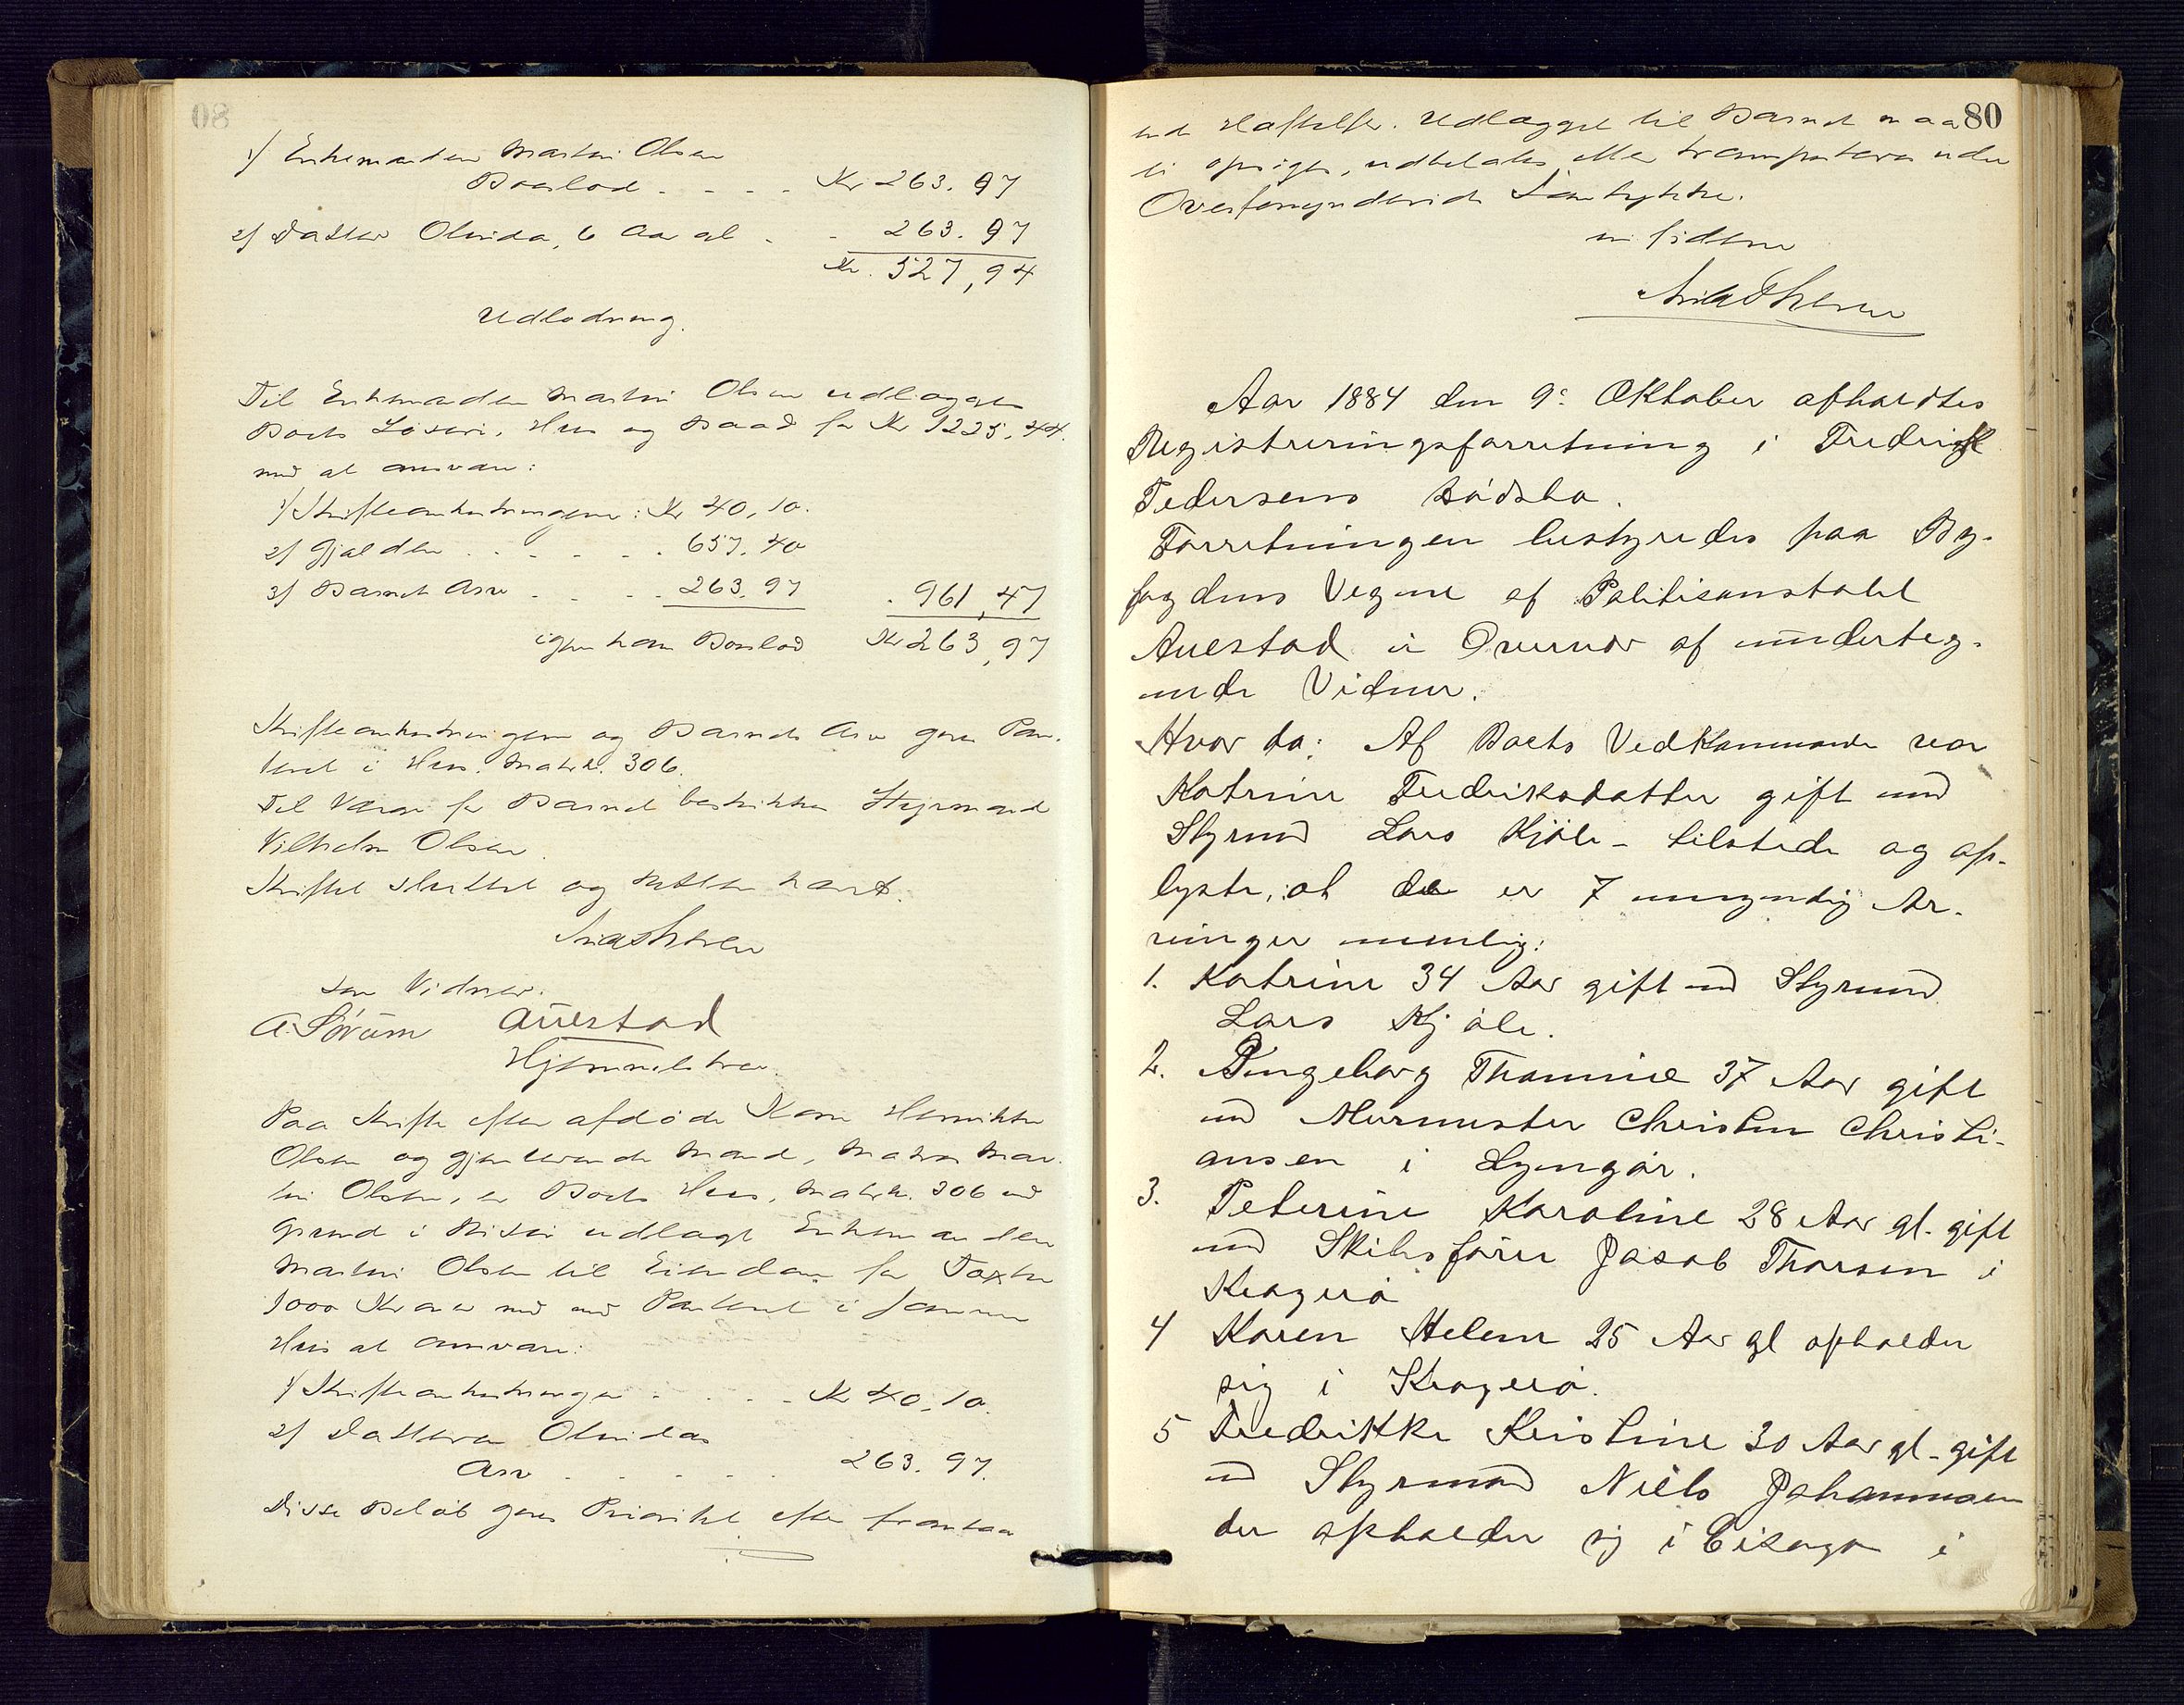 1/ Enkemanden Martin Olsen
Boeslod . . . . Kr 263.97
2/ Datter Olivida, 6 Aar gl . . 263.97
Kr. 527,94
Udlodning.
Til Enkemanden Martin Olsen udlægges
Boets Løsøre, Hus og Baad for Kr 1225,44.
med at ansvare:
1/ Skifteomkostningerne: Kr 40,10.
2/ Gjælden . . . . . . 657.40
3/ Barnets Arv . . . . 263.97 . 961,47
igjen hans Boeslod Kr 263,97
Skifteomkostningerne og Barnets Arv gives Pan-
teret i Hus. Matrk. 306.
Til Værge for Barnet beskikkes Styrmand
Vilhelm Olsen.
Skiftet sluttet og Retten hævet.
som Vidner.
A. Sörum Auestad
Paa Skifte efter afdøde Karen Henrikke
Olsen og gjenlevende Mand, Matros Mar-
tin Olsen, er Boets Hus, Matrk. 306 med
Grund i Risør udlagt Enkemanden
Martin Olsen til Eiendom for Taxten
1000 Kroner med mod Panteret i samme
Hus at ansvare:
1/ Skifteomkostninger . . . . Kr 40,10.
2/ Datteren Olividas
Arv . . . . . . 263.97.
Disse Beløb gives Prioritet efter foranstaa
80
ende Heftelser. Udlægget til Barnet maa
ei opsiges, udbetales eller transporteres uden
Overformynderiets Samtykke.
Aar 1884 den 9de Oktober afholdtes
Registreringsforretning i Fredrik
Pedersens Dödsbo.
Forretningen bestyredes paa By-
fogdens Vegne af Politikonstabel
Auestad i Overvær af underteg-
nede Vidner.
Hvor da: Af Boets Vedkommende var
Katrine Fredriksdatter gift med
Styrmd Lars Kjöle - tilstede og op-
lyste, at der er 7 umyndig Ar-
vinger nemlig:
1. Katrine 34 Aar gift md Styrmd
Lars Kjöle.
2. Ingeborg Thomine 37 Aar gift
md Murmester Christen Christi-
ansen i Lyngör.
3. Peterine Karoline 28 Aar gl. gift
md Skibsförer Jacob Thorsen i
Kragerö
4 Karen Helene 25 Aar gl opholder
sig i Kragerö.
5 Fredrikke Kristine 30 Aar gl. gift
md Styrmand Niels Johannesen
der opholder sig i Cikago i